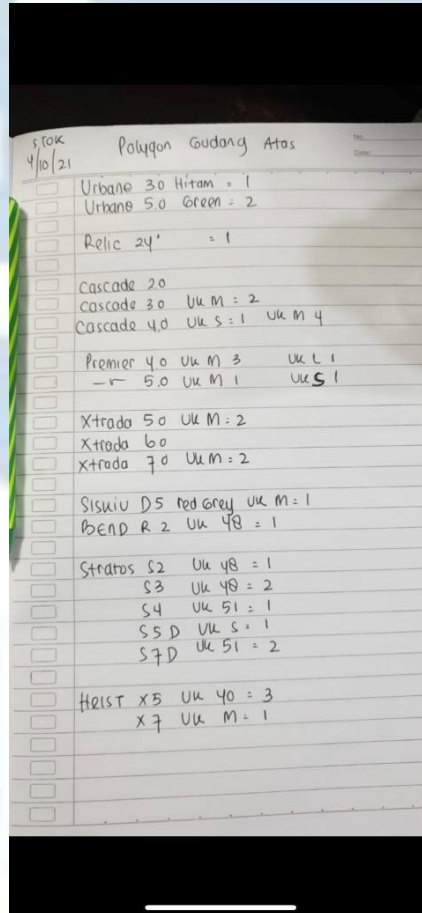 STOK
4/10/21
Polygon Gudang Atas
No.
Date.
Urbano 3.0 Hitam = 1
Urbano 5.0 Green = 2
Relic 24" = 1
Cascade 2.0
Cascade 3.0 Uk M = 2
Cascade 4.0 Uk S = 1 Uk M 4
Premier 4.0 Uk M 3 Uk L 1
5.0 Uk M 1 Uk S 1
Xtrada 5.0 Uk M = 2
Xtrada 6.0
Xtrada 7.0 Uk M = 2
Siskiu D5 red Grey Uk M = 1
BEND R 2 Uk 48 = 1
Stratos S2 Uk 48 = 1
S3 Uk 48 = 2
S4 Uk 51 = 1
S5 D Uk S = 1
S7D Uk 51 = 2
HEIST X5 Uk 40 = 3
X7 Uk M = 1